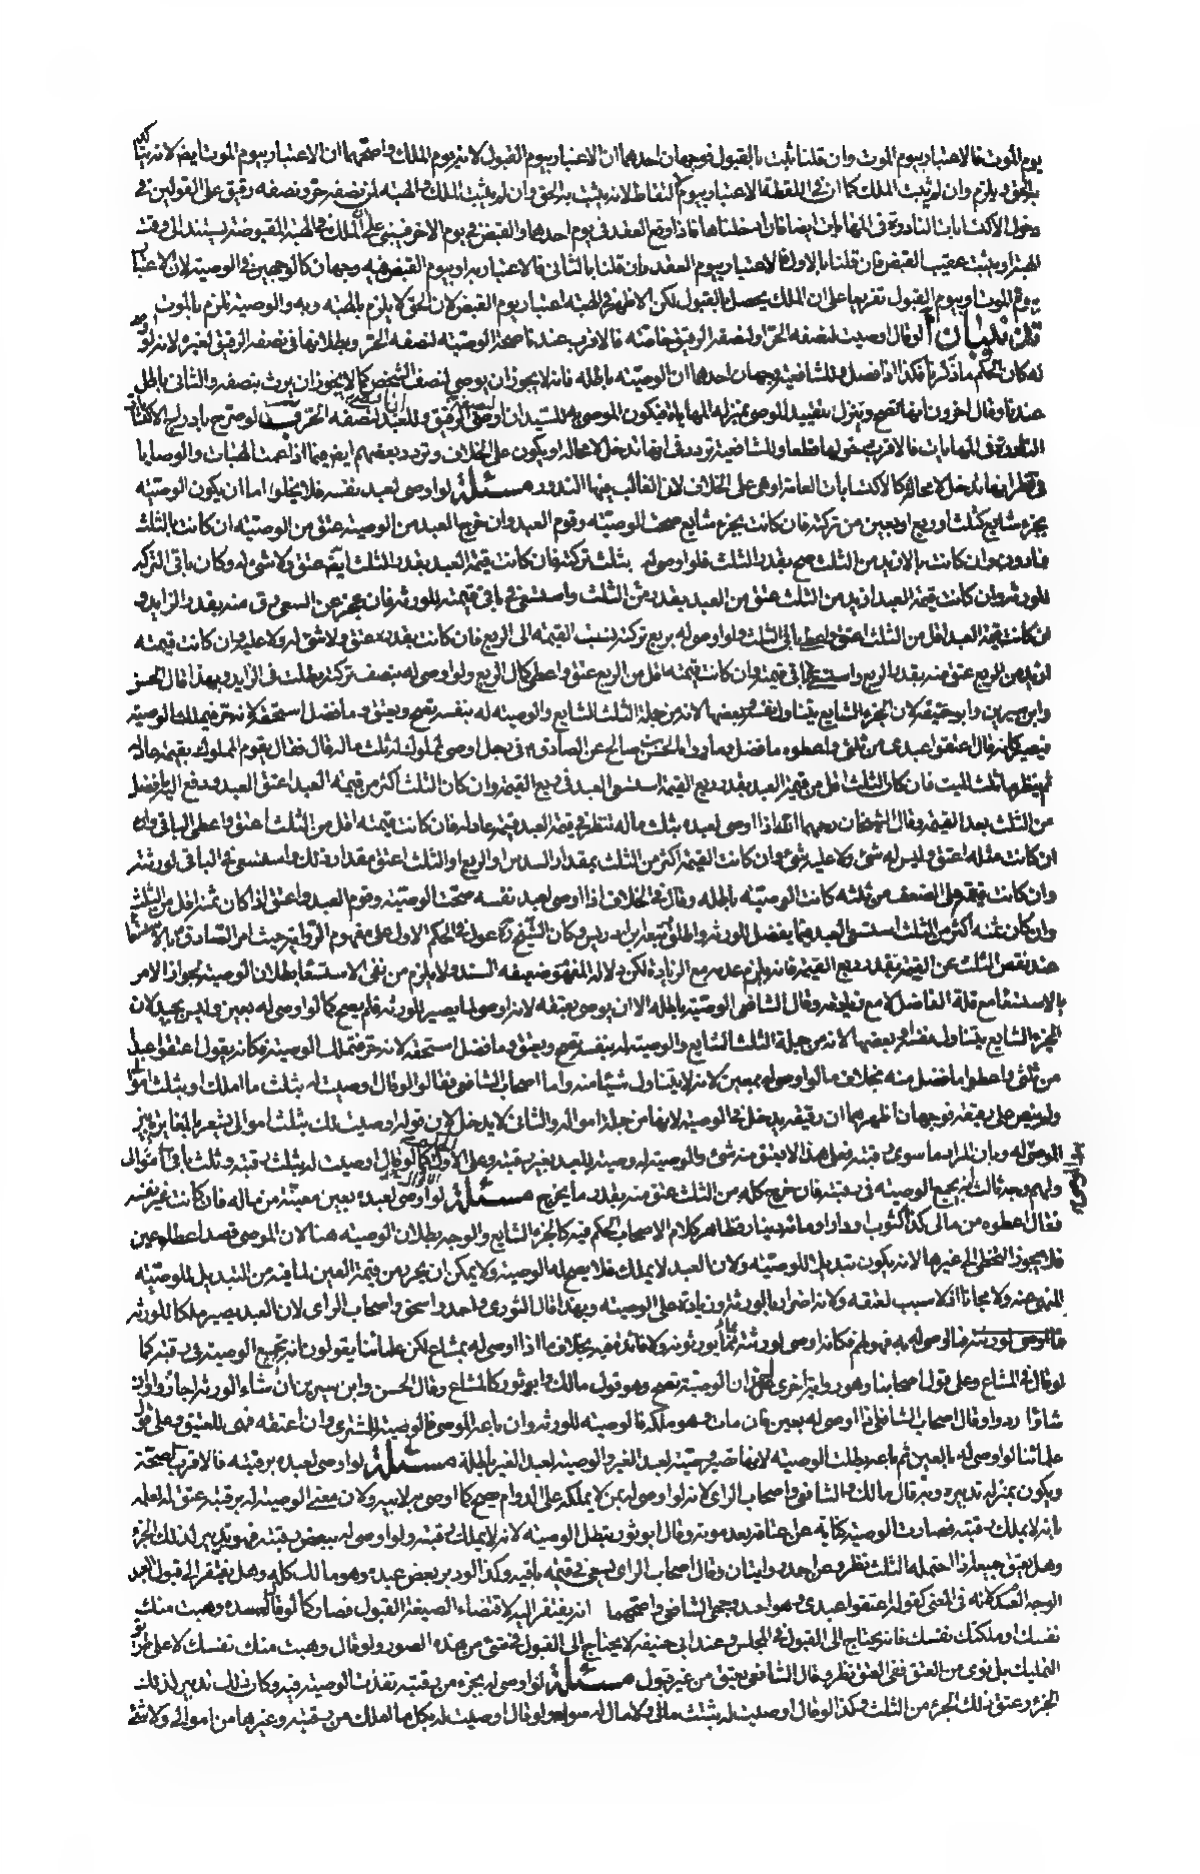 يوم الموت فالاعتبار بيوم الموت وان قلنا يثبت بالقبول فوجهان احدهما ان الاعتبار بيوم القبول لانه يوم الملك واصحهما ان الاعتبار بيوم الموت ايضا لانه
بالحق ويلزم وان لم يثبت الملك كما ان في اللقطة الاعتبار بيوم التقاط لانه يثبت به الحق وان لم يثبت الملك والهبة لمن نصفه حر ونصفه رقيق على القولين في
دخول الاكتسابات النادرة في المهاياة ايضا فان ادخلناها فاذا وقع العقد في يوم احدهما والقبض في يوم الاخر فيبنى على ان الملك في الهبة المقبوضة يستند الى وقت
الهبة او يثبت عقيب القبض فان قلنا بالاول فالاعتبار بيوم العقد وان قلنا بالثاني فالاعتبار به او بيوم القبض فيه وجهان كالوجهين في الوصية لان الاعتبار
بيوم الموت او بيوم القبول تفريعا على ان الملك يحصل بالقبول لكن الاظهر في الهبة اعتبار يوم القبض لان الحق لا يلزم بالهبة وبه والوصية تلزم بالموت
تذنيبان آ لو قال اوصيت لنصفه الحر او لنصفه الرقيق خاصة فالاقرب عندنا صحة الوصية لنصفه الحر وبطلانها في نصفه الرقيق لغيره لانه لو
له كان الحكم ما ذكرنا فكذا اذا فصل وللشافعية وجهان احدهما ان الوصية باطلة فانه لا يجوز ان يوصي لنصف الشخص كما لا يجوز ان يرث بنصفه والثاني باطل
عندنا وقال اخرون انها تصح وينزل بتقييد الموصي منزلة المهاياة فيكون الموصى به للسيد ان اوصى لنصفه الرقيق وللعبد ان اوصى لنصفه الحر ب لو صرح بادراج الاكتسابات
النادرة في المهايات فالاقرب دخولها قطعا وللشافعية تردد في انها تدخل لا محالة او يكون على الخلاف وتردد بعضهم ايضا فيما اذا عمت الهبات والوصايا
في قطر انها تدخل لا محالة كالاكتسابات العامة او هي على الخلاف لان الغالب فيها الندور مسئلة لو اوصى لعبد نفسه فلا يخلوا اما ان يكون الوصية
بجزء شايع كثلث او ربع او بعين من تركته فان كانت بجزء شايع صحت الوصية وقوم العبد وان خرج العبد من الوصية عتق من الوصية ان كانت بالثلث
فما دون وان كانت بالازيد من الثلث صح بقدر الثلث فلو اوصى له بثلث تركته فان كانت قيمة العبد بقدر الثلث ايضا عتق ولا شيء له وكان باقي التركة
للورثة وان كانت قيمة العبد ازيد من الثلث عتق من العبد بقدر من الثلث واستسعى في باقي قيمته للورثة فان عجز عن السعي رق منه بقدر الزايد و
ان كانت قيمة العبد اقل من الثلث اعتق واعطى باقي الثلث ولو اوصى له بربع تركته نسب القيمة الى الربع فان كانت بقدره عتق ولا شيء له ولا عليه وان كانت قيمته
ازيد من الربع عتق منه بقدر الربع واستسعى في باقي قيمته وان كانت قيمته اقل من الربع عتق واعطى كمال الربع ولو اوصى له بنصف تركته بطلت في الزايد وبهذا قال الحسن
وابن سيرين وابو حنيفة لان الجزء الشايع يتناول نفسه او بعضها لانه من جملة الثلث الشايع والوصية له بنفسه تصح ويعتق وما فضل استحقه لانه حر فيملك الوصية
فيصير كانه قال اعتقوا عبدي من ثلثي واعطوه ما فضل لما رواه الحسن بن صالح عن الصادق في رجل اوصى لمملوك له بثلث ماله قال فقال يقوم المملوك بقيمة عادلة
ثم ينظر ما ثلث الميت فان كان الثلث اقل من قيمة العبد بقدر ربع القيمة استسعى العبد في ربع القيمة وان كان الثلث اكثر من قيمة العبد اعتق العبد ودفع اليه ما فضل
من الثلث بعد القيمة وقال الشيخان رحمهما الله اذا اوصى لعبده بثلث ماله نظر في قيمة العبد قيمة عادلة فان كانت قيمته اقل من الثلث اعتق واعطى الباقي وان
ان كانت مثله اعتق وليس له شيء ولا عليه شيء وان كانت القيمة اكثر من الثلث بمقدار السدس او الربع او الثلث اعتق مقدار ذلك واستسعى في الباقي لورثته
وان كانت قيمته على الضعف من ثلثه كانت الوصية باطلة وقال في الخلاف اذا اوصى لعبد نفسه صحت الوصية وقوم العبد واعتق اذا كان ثمنه اقل من الثلث
وان كان ثمنه اكثر من الثلث استسعى العبد فيما يفضل للورثة واطلق وتبعه ابن ادريس وكان الشيخ ره عول في الحكم الاول على مفهوم الرواية حيث امر الصادق بالاستسعا
عند نقص الثلث عن القيمة بقدر ربع القيمة فانه يلزم عدمه مع الزيادة لكن دلالة المفهوم ضعيفة السند ولا يلزم من نفي الاستسعا بطلان الوصية لجواز الامر
بالاستسعا مع قلة الفاضل لا مع زيادته وقال الشافعي الوصية باطلة الا ان يوصي بعتقه لانه اوصى لما يصير للورثة فلم يصح كما لو اوصى له بعين وليس بجيد لان
الجزء الشايع يتناول نفسه او بعضها لانه من جملة الثلث الشايع والوصية له بنفسه تصح ويعتق وما فضل استحقه لانه حر فتملك الوصية فكانه يقول اعتقوا عبدي
من ثلثي واعطوا ما فضل منه بخلاف ما لو اوصى له بمعين لانه لا يتناول شيئا منه واما اصحاب الشافعي فقالوا لو قال اوصيت له بثلث ما املك او بثلث اموالي
ولم ينص على رقبته فوجهان اظهرهما ان رقبته يدخل في الوصية لانها من جملة امواله والثاني لا يدخل لان قوله اوصيت لك بثلث اموالي يشعر بالمغايرة بين
الموصى له وبان المراد ما سوى رقبته فعلى هذا لا يعتق منه شيء والوصية له وصية للعبد بغير رقبته وعلى الاول كما لو قال اوصيت له بثلث رقبته وثلث باقي اموالي
ولهم وجه ثالث انه يجمع الوصية في رقبته فان خرج كله من الثلث عتق منه بقدر ما يخرج مسئلة لو اوصى لعبده بعين معينة من ماله فان كانت غير نفسه
فقال اعطوه من مالي كذا كثوب او دار او مائة دينار فظاهر كلام الاصحاب الحكم فيه كالجزء الشايع والوجه بطلان الوصية هنا لان الموصي قصد اعطاءه عين
فلا يجوز التخطي الى غيرها لانه يكون تبديلا للوصية ولان العبد لا يملك فلا يصح له الوصية ولا يمكن ان يحرر من قيمة العين لما فيه من التبديل للوصية
المنهي عنه ولا مجانا اذ لا سبب لعتقه ولانه اضرارا بالورثة وزيادة على الوصية وبهذا قال الثوري واحمد واسحق واصحاب الراي لان العبد يصير ملكا للورثة
فما اوصى له به فهو لهم فكانه اوصى لورثته بما يورثونه ولا فائدة فيه بخلاف ما اذا اوصى له بمشاع لكن علمائنا يقولون انه يجمع الوصية في رقبته كما
لو قال في المشاع وعلى قول اصحابنا وهو رواية اخرى عن احمد ان الوصية تصح وهو قول مالك وابو ثور كالمشاع وقال الحسن وابن سيرين ان شاء الورثة اجازوا وان
شاؤا ردوا وقال اصحاب الشافعي اذا اوصى له بعين فان مات وهو ملكه فالوصية للورثة وان باعه الموصي فالوصية للمشتري وان اعتقه فهي للعتيق وعلى قول
علمائنا لو اوصى له بالعين ثم باعه بطلت الوصية لانها تصير وصية لعبد الغير والوصية لعبد الغير باطلة مسئلة لو اوصى لعبده برقبته فالاقرب الصحة
ويكون بمنزلة تدبيره وبه قال مالك والشافعي واصحاب الراي لانه لو اوصى له بمن لا يملكه على الدوام يصح كما اوصى له بابيه ولان معنى الوصية له برقبته عتق له لعلمه
بانه لا يملك رقبته فصارت الوصية كناية عن عتاقه بعد موته وقال ابو ثور يبطل الوصية لانه لا يملك رقبته ولو اوصى له ببعض رقبته فهو تدبير لذلك الجزء
وهل يعتق جميعه اذا احتمله الثلث نظر وعن احمد روايتان وقال اصحاب الراي يسعى في قيمة باقيه وكذا لو دبر بعض عبده وهو مالك كله وهل يفتقر الى قبول العبد
الوجه العدم لانه في المعنى كقوله اعتقوا عبدي وهو احد وجهي الشافعي واصحهما انه يفتقر اليه لاقتضاء الصيغة القبول فصار كما لو قال لعبده وهبت منك
نفسك او ملكتك نفسك فانه يحتاج الى القبول في المجلس وعند ابي حنيفة لا يحتاج الى القبول في شيء من هذه الصور ولو قال وهبت منك نفسك لا على طريق
التمليك بل نوى من العتق ففي العتق نظر وقال الشافعي يعتق من غير قبول مسئلة لو اوصى له بجزء من رقبته نفذت الوصية فيه وكان ذلك تدبير لذلك
الجزء وعتق ذلك الجزء من الثلث وكذا لو قال اوصيت له بثلث مالي ولا مال له سواه ولو قال اوصيت له بكل ما املك من رقبته وغيرها من اموالي ولا شيء